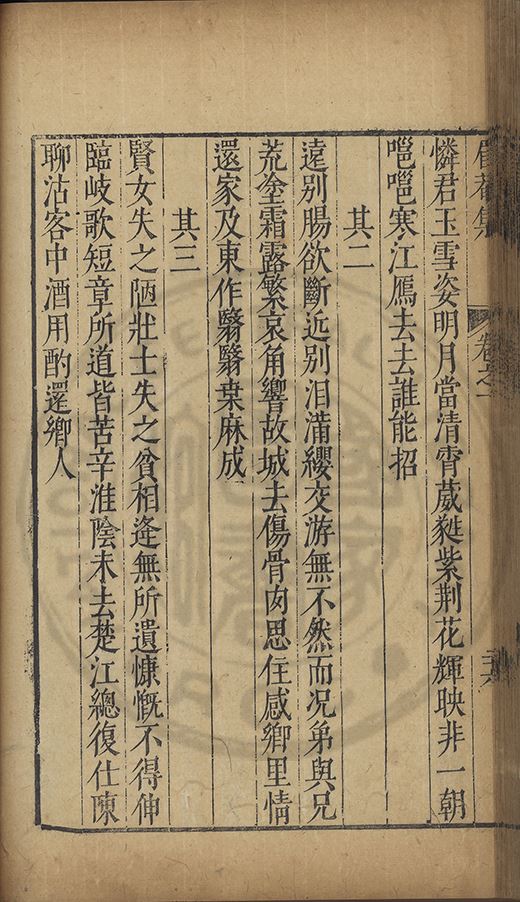 卷之一
憐君玉雪姿明月當清霄葳蕤紫荆花輝映非一朝
嗈嗈寒江鴈去去誰能招
其二
遠別腸欲斷近別泪滿纓交游無不然而况弟與兄
荒塗霜露繁哀角響故城去傷骨肉思住感鄉里情
還家及東作翳翳桒麻成
其三
賢女失之陋壯士失之貧相逢無所遺慷慨不得伸
臨岐歌短章所道皆苦辛淮陰未去楚江總復仕陳
聊沽客中酒用酌還鄉人